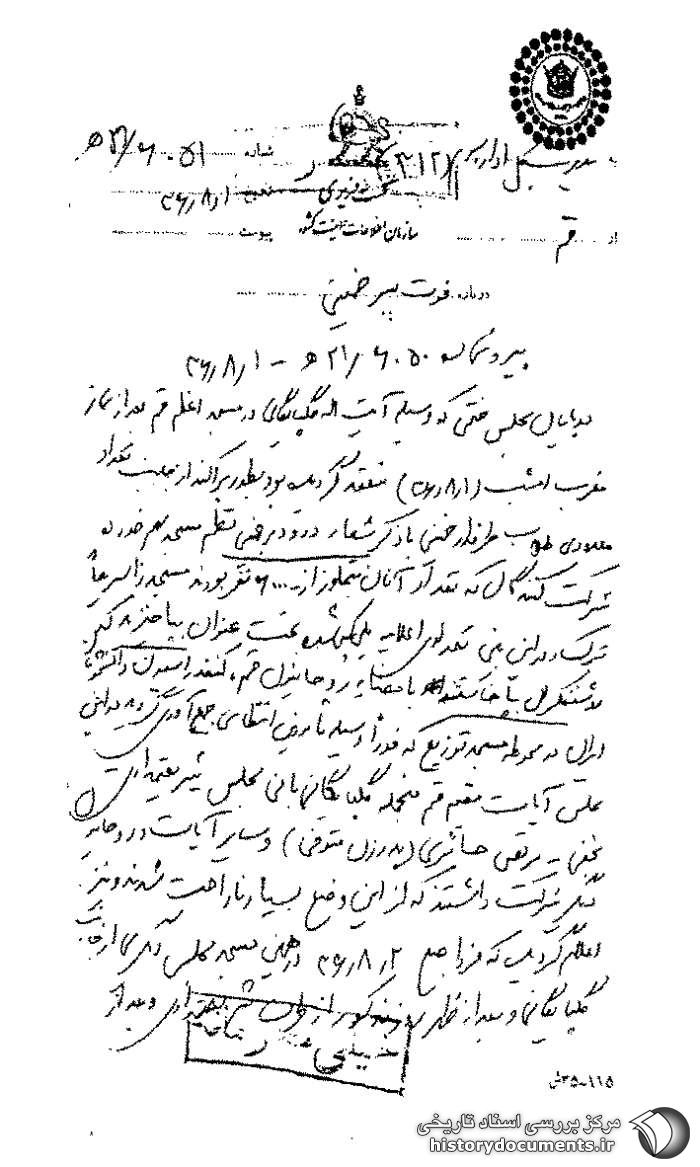 به مدیریت کل اداره سوم (۳۱۲) شماره ۲۱/۶۰۵۱ ه‍
خیلی فوری تاریخ ۳۶/۸/۱
از قم سازمان اطلاعات و امنیت کشور پیوست
درباره فوت پسر خمینی
پیرو شماره ۲۱/۶۰۵۰ ه‍ - ۳۶/۸/۱
در پایان مجلس ختمی که وسیله آیت اله گلپایگانی در مسجد اعظم قم بعد از نماز
مغرب امشب (۳۶/۸/۱) منعقد گردیده بود بطور پراکنده از جانب تعداد
معدودی طلاب طرفدار خمینی با ذکر شعار درود بر خمینی نظم مسجد بهم خورد و
شرکت کنندگان که تعداد آنان متجاوز از ۶۰۰۰ نفر بودند مسجد را سریعاً
ترک و در این بین تعدادی اعلامیه پلی کپی شده تحت عنوان
با امضاء روحانیون قم، کنفدراسیون دانشجویان
ایران در محوطه مسجد توزیع که فوراً وسیله مامورین انتظامی جمع آوری گردید در این
مجلس آیات مقیم قم منجمله گلپایگانی بانی مجلس شریعتمداری
نجفی - مرتضی حائری (پدر زن متوفی) و سایر آیات و روحانیون
دیگر شرکت داشتند که از این وضع بسیار ناراحت شدند و نیز
اعلام گردید که فردا صبح ۳۶/۸/۲ در همین مسجد مجلس دیگری از جانب
گلپایگانی و بعد از ظهر روز مذکور از طرف شریعتمداری و بعد از
۱۱۵-۳۵ش
مرکز بررسی اسناد تاریخی
historydocuments.ir